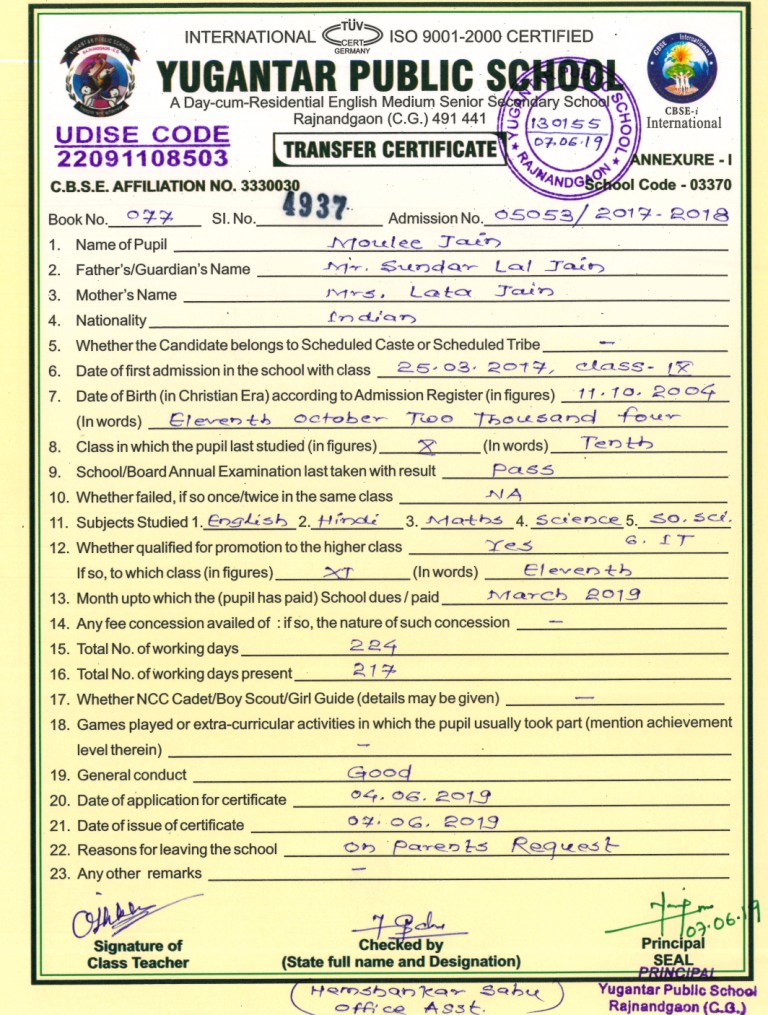 INTERNATIONAL TÜV CERT GERMANY ISO 9001-2000 CERTIFIED
YUGANTAR PUBLIC SCHOOL
RAJNANDGAON - C.G.
YUGANTAR PUBLIC SCHOOL
CBSE - International
A Day-cum-Residential English Medium Senior Secondary School
CBSE-i
International
Rajnandgaon (C.G.) 491 441
UDISE CODE
22091108503
YUGANTAR PUBLIC SCHOOL
130155
07.06.19
RAJNANDGAON
TRANSFER CERTIFICATE
ANNEXURE - I
C.B.S.E. AFFILIATION NO. 3330030 School Code - 03370
Book No. 077 Sl. No. 4937 Admission No. 05053/2017-2018
1. Name of Pupil Moulee Jain
2. Father's/Guardian's Name Mr. Sundar Lal Jain
3. Mother's Name Mrs. Lata Jain
4. Nationality Indian
5. Whether the Candidate belongs to Scheduled Caste or Scheduled Tribe –
6. Date of first admission in the school with class 25.03.2017, class- IX
7. Date of Birth (in Christian Era) according to Admission Register (in figures) 11.10.2004
(In words) Eleventh October Two Thousand four
8. Class in which the pupil last studied (in figures) X (In words) Tenth
9. School/Board Annual Examination last taken with result Pass
10. Whether failed, if so once/twice in the same class NA
11. Subjects Studied 1. English 2. Hindi 3. Maths 4. Science 5. So. Sci.
6. IT
12. Whether qualified for promotion to the higher class Yes
If so, to which class (in figures) XI (In words) Eleventh
13. Month upto which the (pupil has paid) School dues / paid March 2019
14. Any fee concession availed of : if so, the nature of such concession –
15. Total No. of working days 224
16. Total No. of working days present 217
17. Whether NCC Cadet/Boy Scout/Girl Guide (details may be given) –
18. Games played or extra-curricular activities in which the pupil usually took part (mention achievement
level therein) –
19. General conduct Good
20. Date of application for certificate 04.06.2019
21. Date of issue of certificate 07.06.2019
22. Reasons for leaving the school On Parents Request
23. Any other remarks –
07.06.19
Signature of
Class Teacher
Checked by
(State full name and Designation)
Principal
SEAL
(Hemshankar Sahu)
Office Asst.
PRINCIPAL
Yugantar Public School
Rajnandgaon (C.G.)